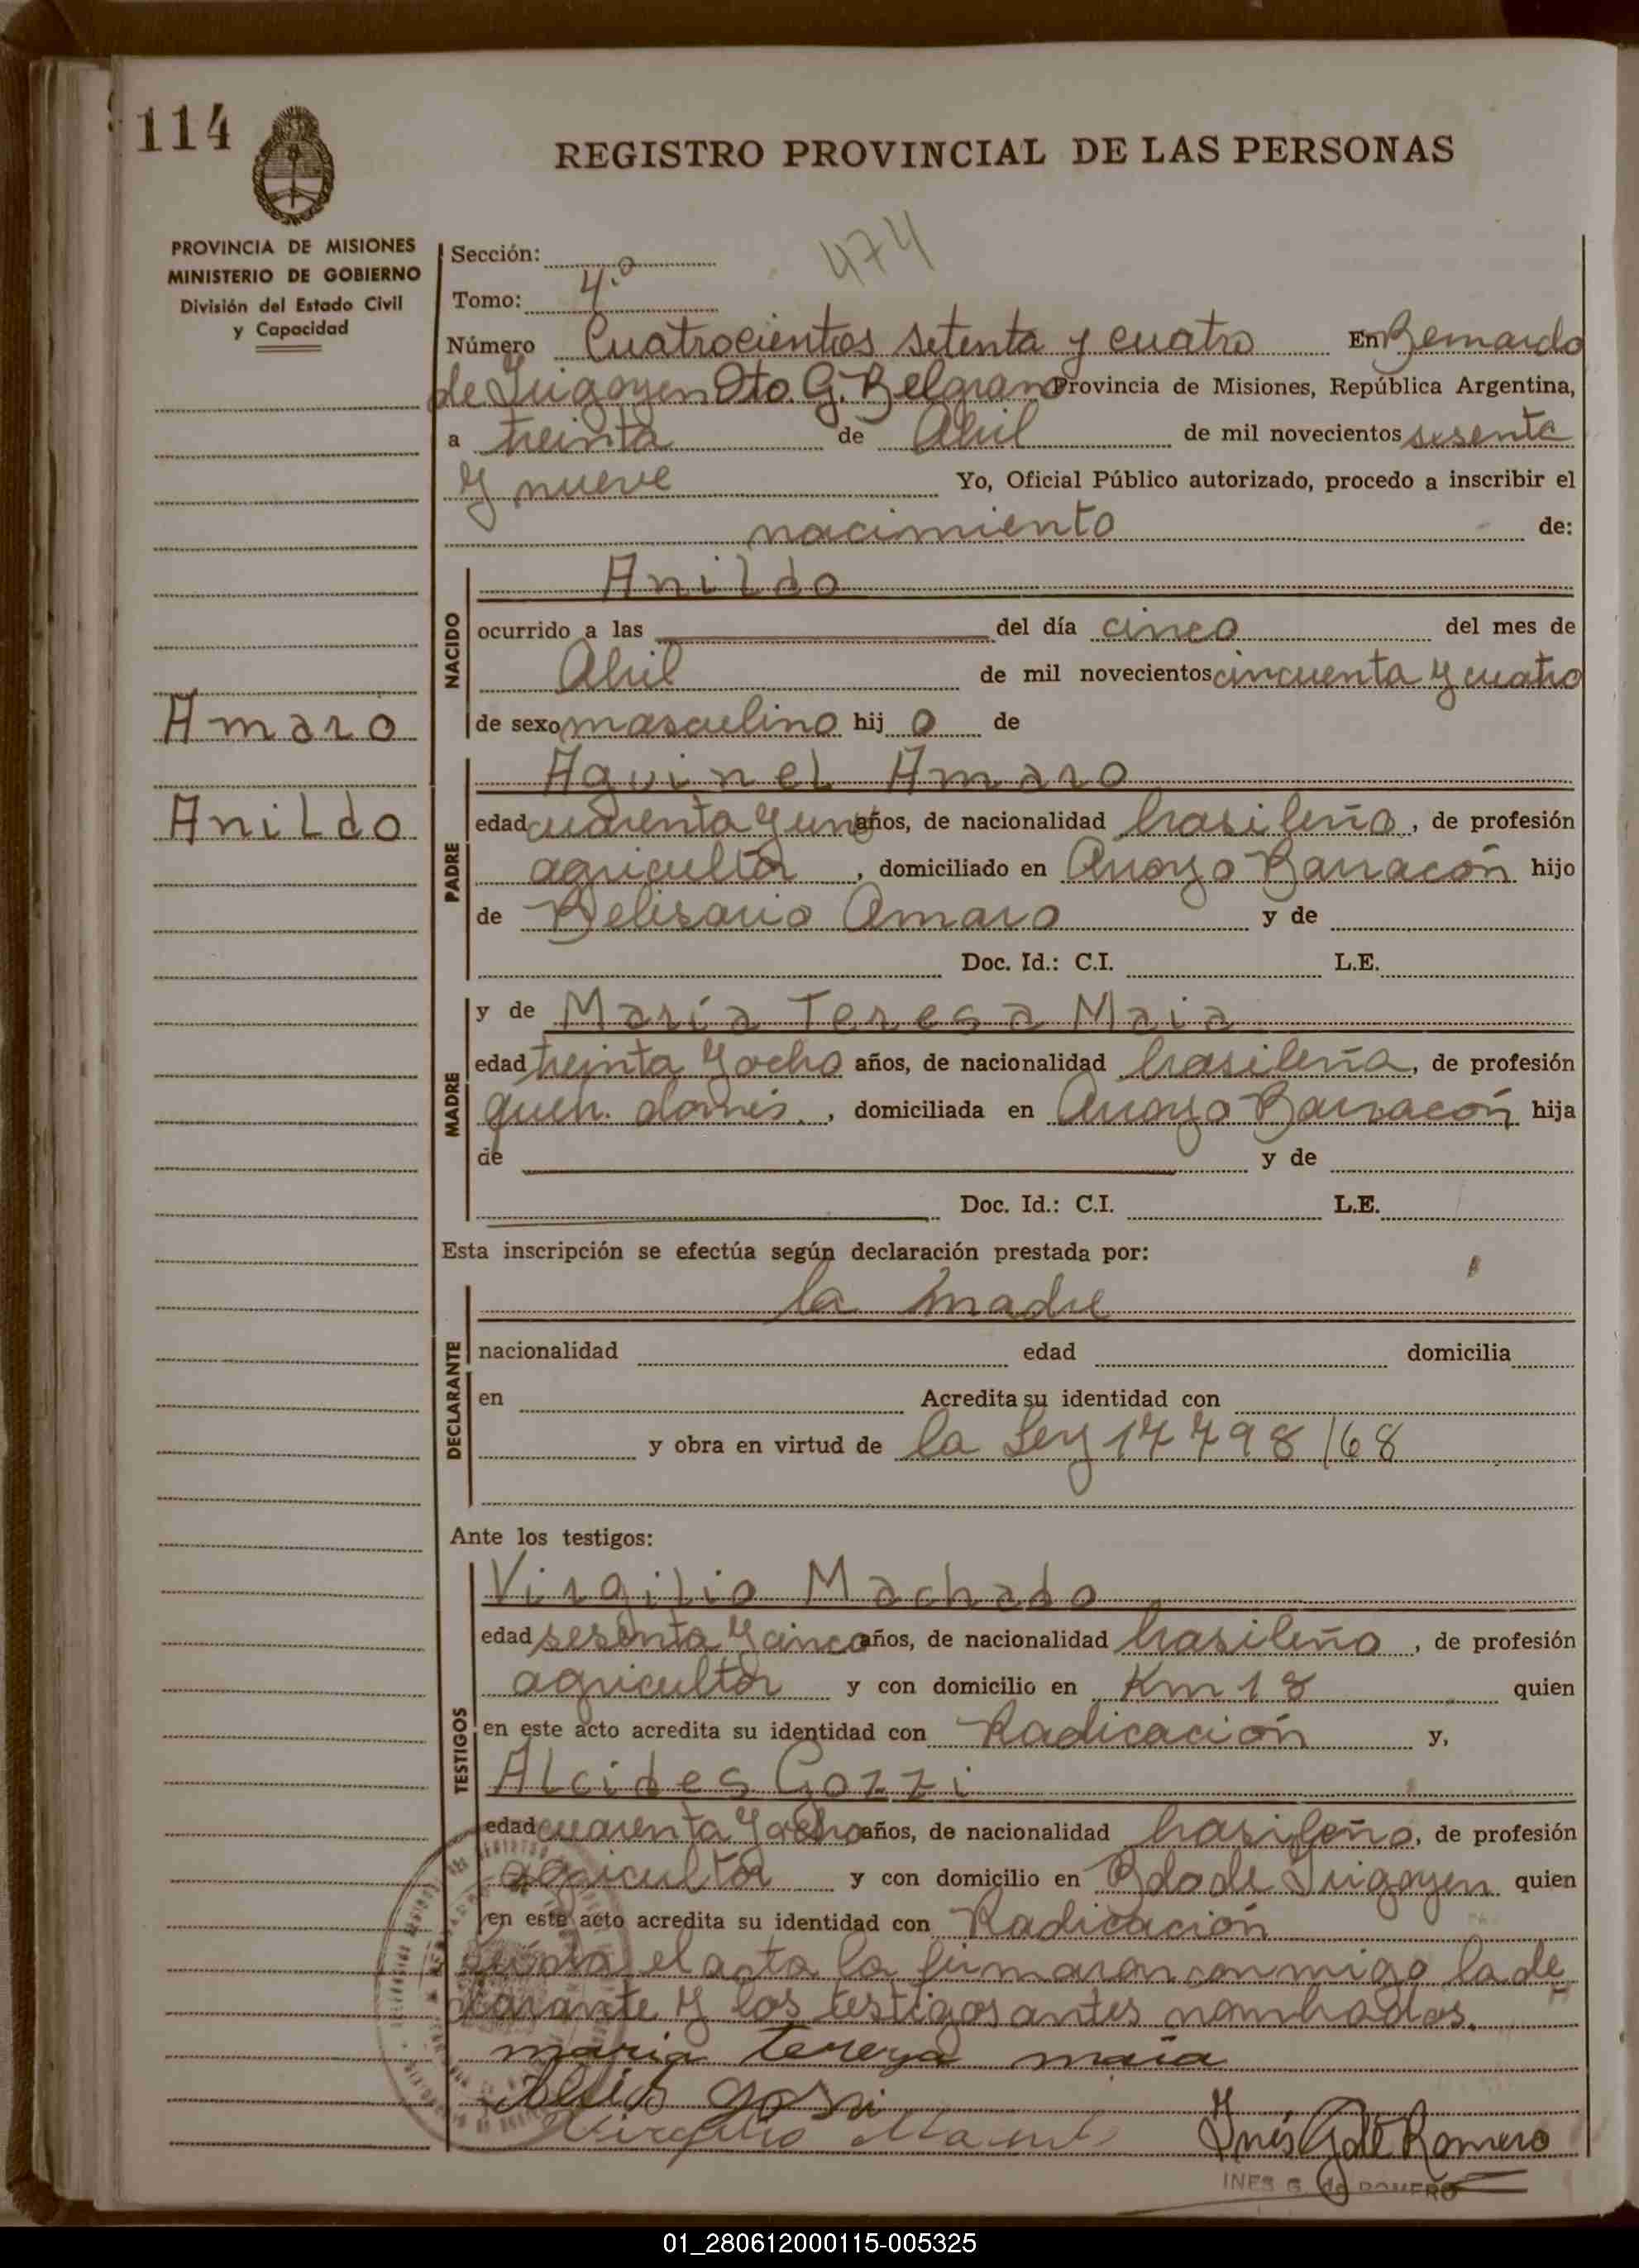 114
REGISTRO PROVINCIAL DE LAS PERSONAS
PROVINCIA DE MISIONES
MINISTERIO DE GOBIERNO
División del Estado Civil
y Capacidad
Amaro
Anildo
474
Sección:
Tomo: 4.º
Número Cuatrocientos setenta y cuatro En Bernardo
de Irigoyen Dto. G. Belgrano Provincia de Misiones, República Argentina,
a treinta de Abril de mil novecientos sesenta
y nueve Yo, Oficial Público autorizado, procedo a inscribir el
nacimiento de:
NACIDO
Anildo
ocurrido a las del día cinco del mes de
Abril de mil novecientos cincuenta y cuatro
de sexo masculino hij o de
PADRE
Aquinel Amaro
edad cuarenta y un años, de nacionalidad brasileño, de profesión
agricultor, domiciliado en Arroyo Barracón hijo
de Belisario Amaro y de
Doc. Id.: C.I. L.E.
MADRE
y de María Teresa Maia
edad treinta y ocho años, de nacionalidad brasileña, de profesión
queh. domés., domiciliada en Arroyo Barracón hija
de y de
Doc. Id.: C.I. L.E.
Esta inscripción se efectúa según declaración prestada por:
DECLARANTE
la madre
nacionalidad edad domicilia
en Acredita su identidad con
y obra en virtud de la Ley 17798/68
Ante los testigos:
TESTIGOS
Virgilio Machado
edad sesenta y cinco años, de nacionalidad brasileño, de profesión
agricultor y con domicilio en Km 18 quien
en este acto acredita su identidad con Radicación y,
Alcides Gozzi
edad cuarenta y ocho años, de nacionalidad brasileño, de profesión
agricultor y con domicilio en Bdo de Irigoyen quien
en este acto acredita su identidad con Radicación
el acta la firmaron conmigo la de_
clarante y los testigos antes nombrados.
maria tereza maia
gozzi
Virgilio
Inés G de Romero
INES G. de ROMERO
01_280612000115-005325